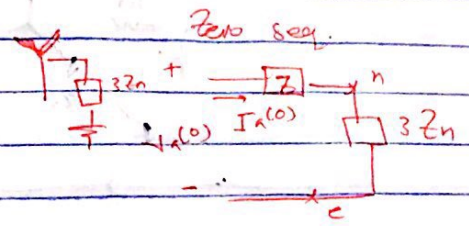 Zero seq.
3Zn + Z n
Va(0) Ia(0) 3Zn
- e